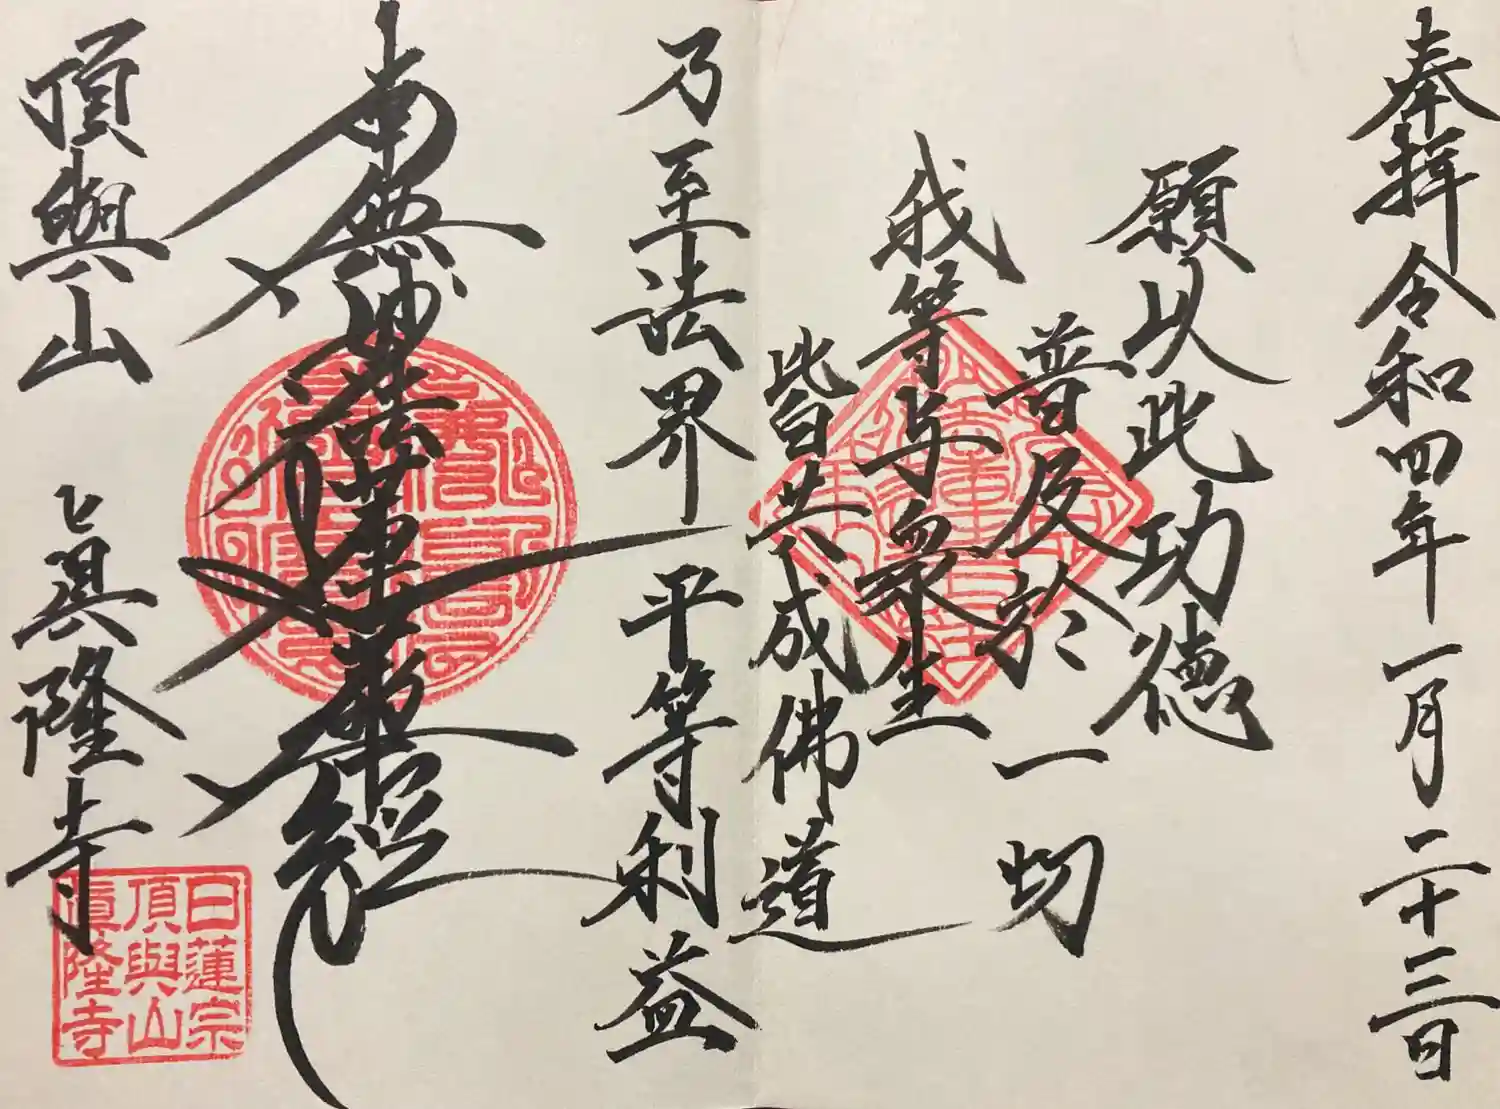 奉拝 令和四年一月二十三日
願以此功徳
普及於一切
我等与衆生
皆共成佛道
乃至法界 平等利益
南無妙法蓮華経
頂輿山 眞隆寺
日蓮宗
頂輿山
眞隆寺